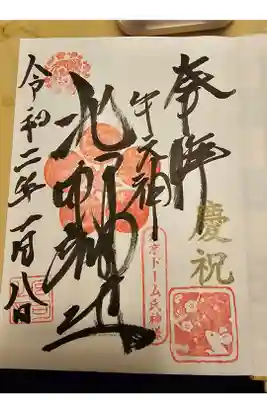 奉拝
慶祝
牛天神
東京ドーム氏神様
北野神社
令和二年一月八日